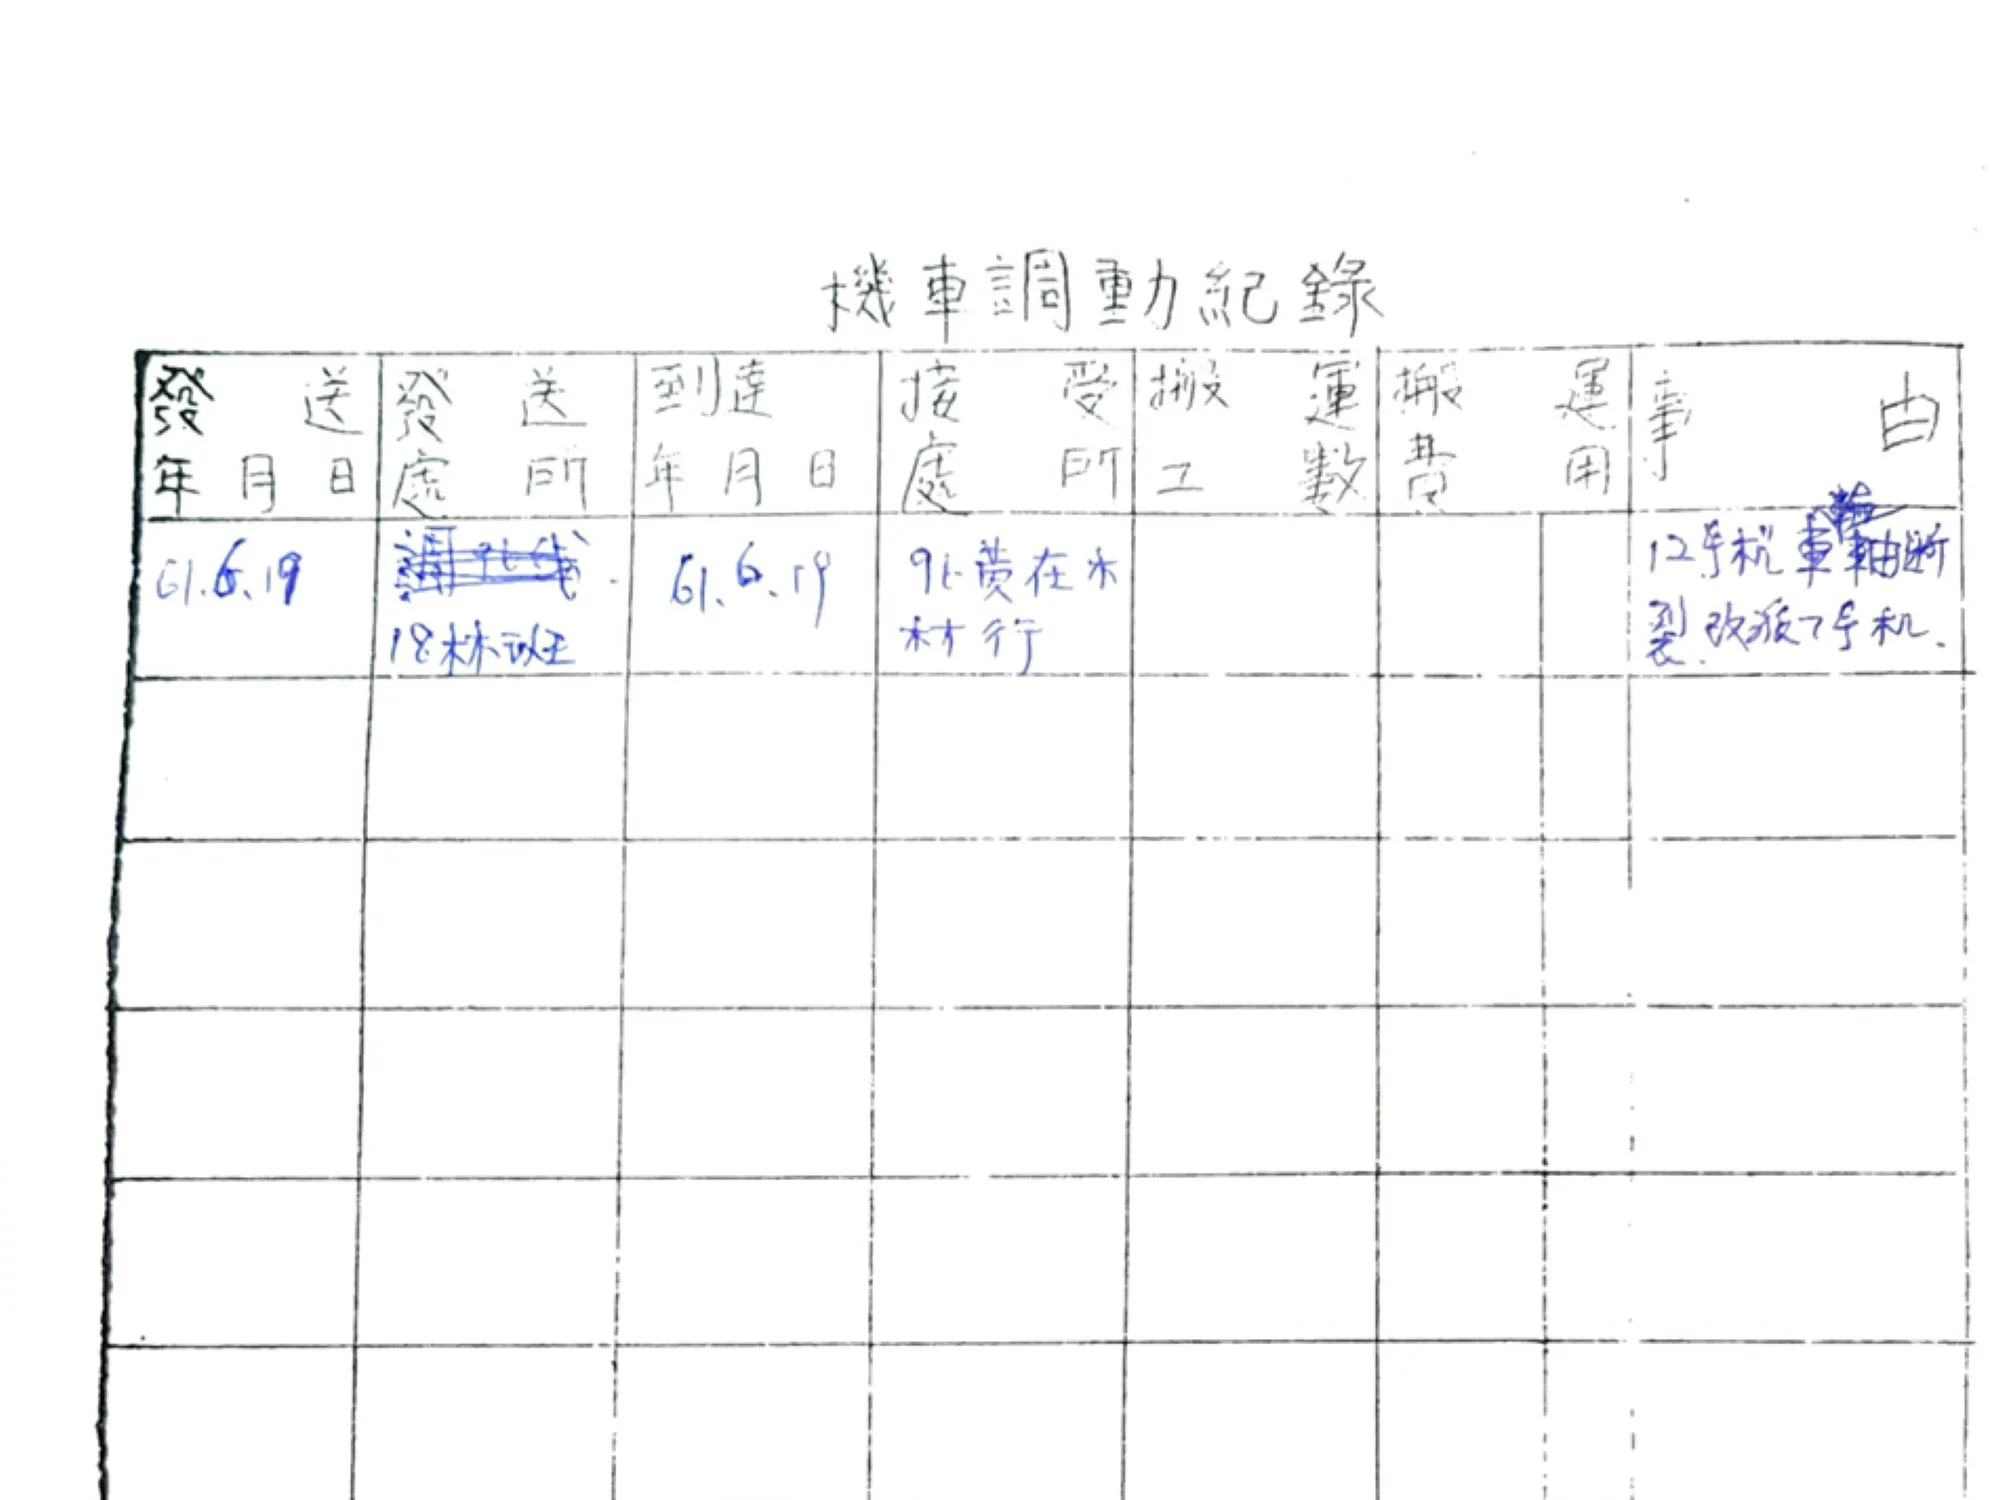 機車調動紀錄
發送年月日 發送處所 到達年月日 接受處所 搬運工數 搬運費用 事由
61.6.19 61.6.19 9K黃在木 12手机車軸断
18林班 材行 裂.改派7手机.